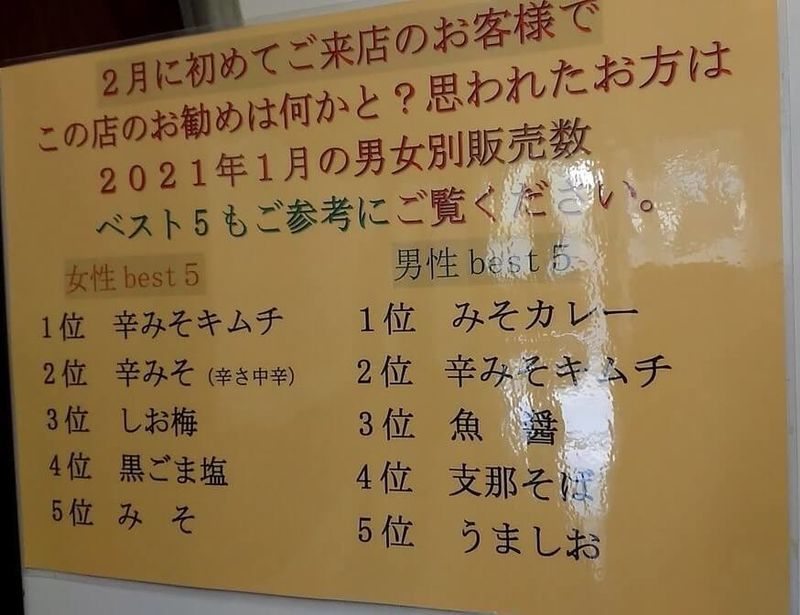 ２月に初めてご来店のお客様で
この店のお勧めは何かと？思われたお方は
２０２１年１月の男女別販売数
ベスト５もご参考にご覧ください。
女性 best５
1位 辛みそキムチ
2位 辛みそ (辛さ中辛)
3位 しお梅
4位 黒ごま塩
5位 み そ
男性 best５
1位 みそカレー
2位 辛みそキムチ
3位 魚 醤
4位 支那そば
5位 うましお